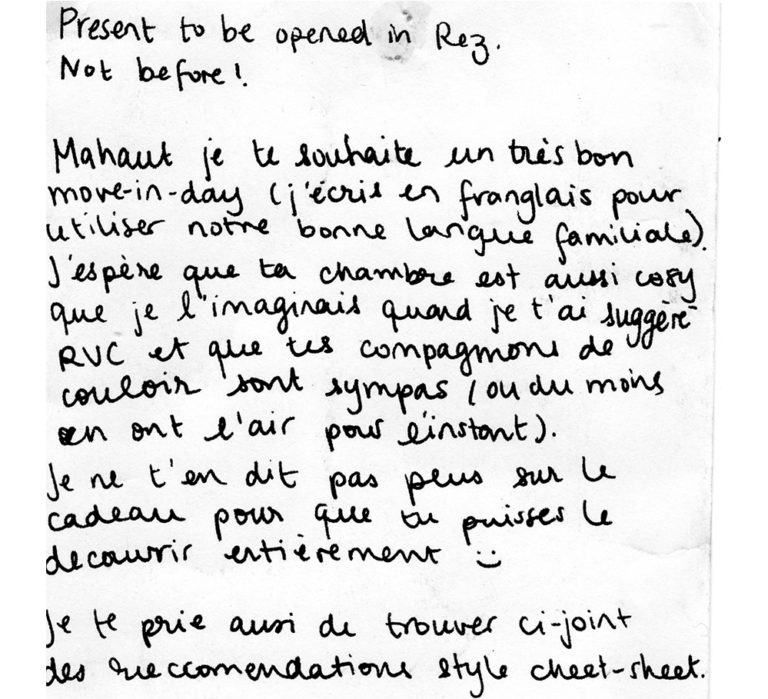 Present to be opened in Rez.
Not before!
Mahaut je te souhaite un très bon
move-in-day (j'écris en franglais pour
utiliser notre bonne langue familiale).
J'espère que ta chambre est aussi cosy
que je l'imaginais quand je t'ai suggéré
RVC et que tes compagnons de
couloir sont sympas (ou du moins
en ont l'air pour l'instant).
Je ne t'en dit pas plus sur le
cadeau pour que tu puisses le
decouvrir entièrement :)
Je te prie aussi de trouver ci-joint
des reccomendations style cheet-sheet.